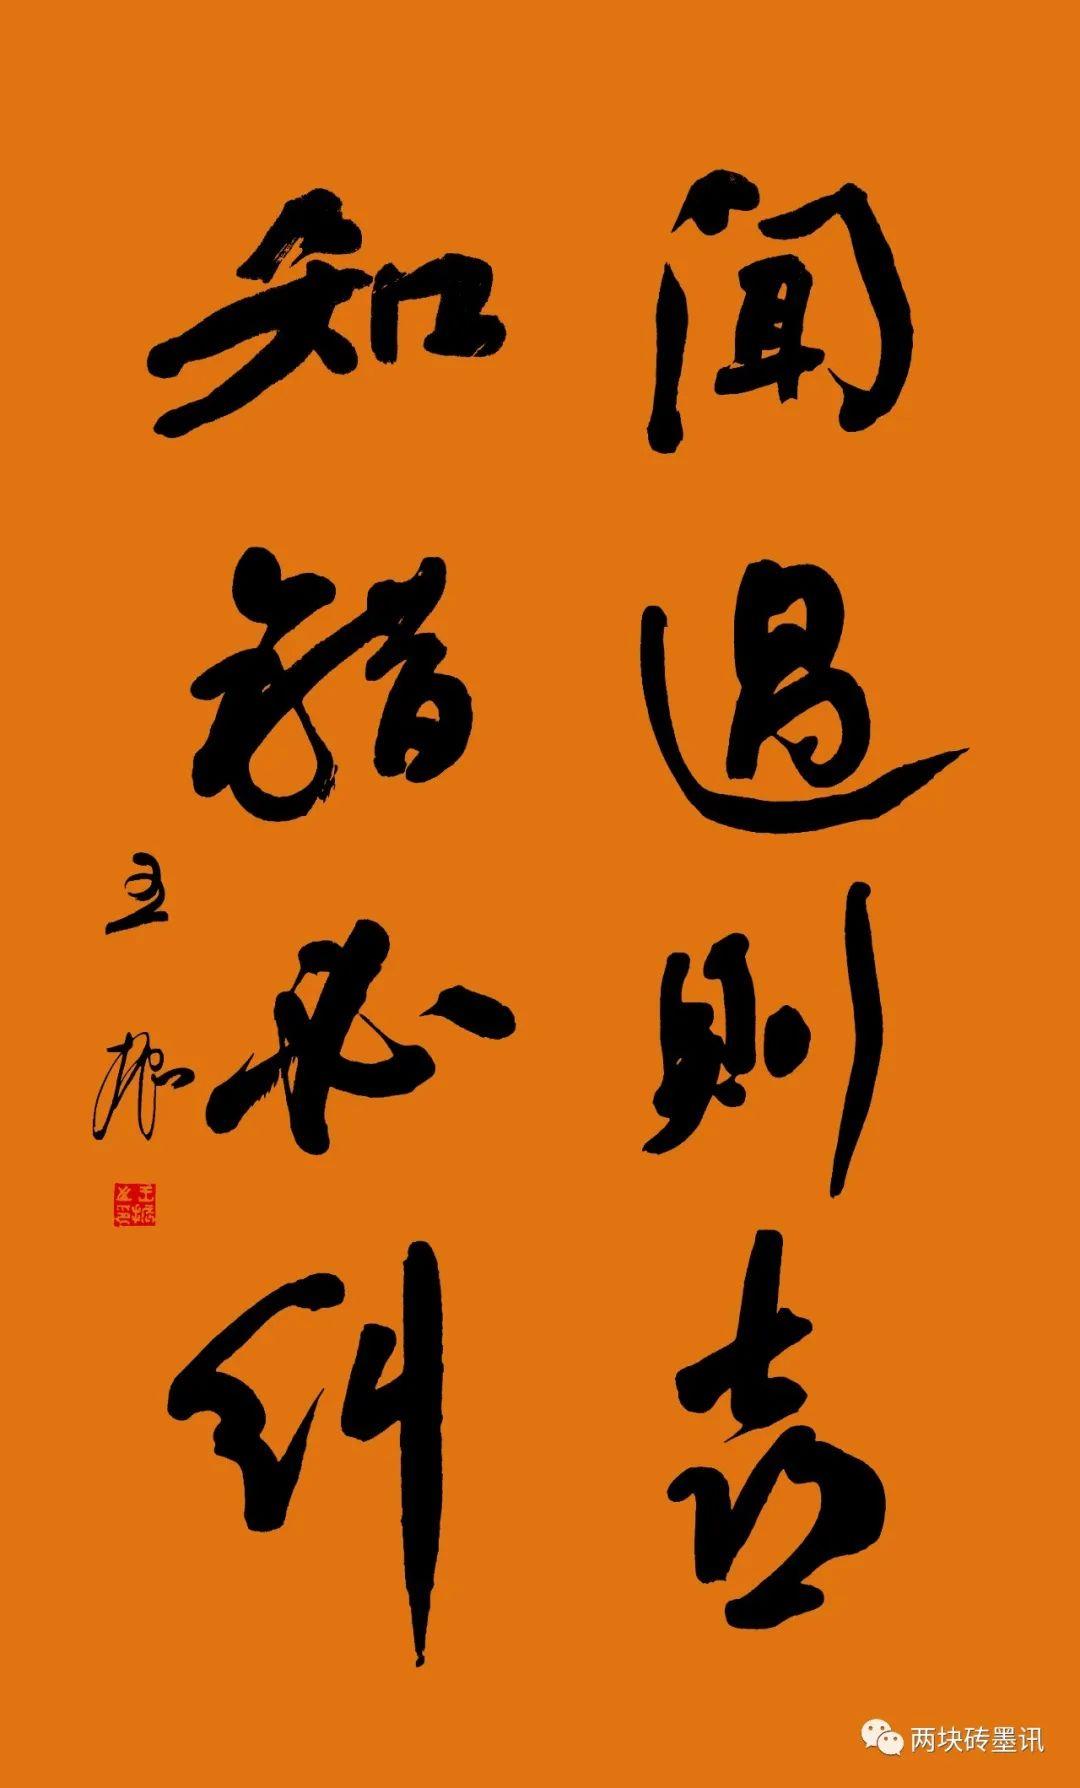 闻过则喜
知错必纠
两块砖墨讯